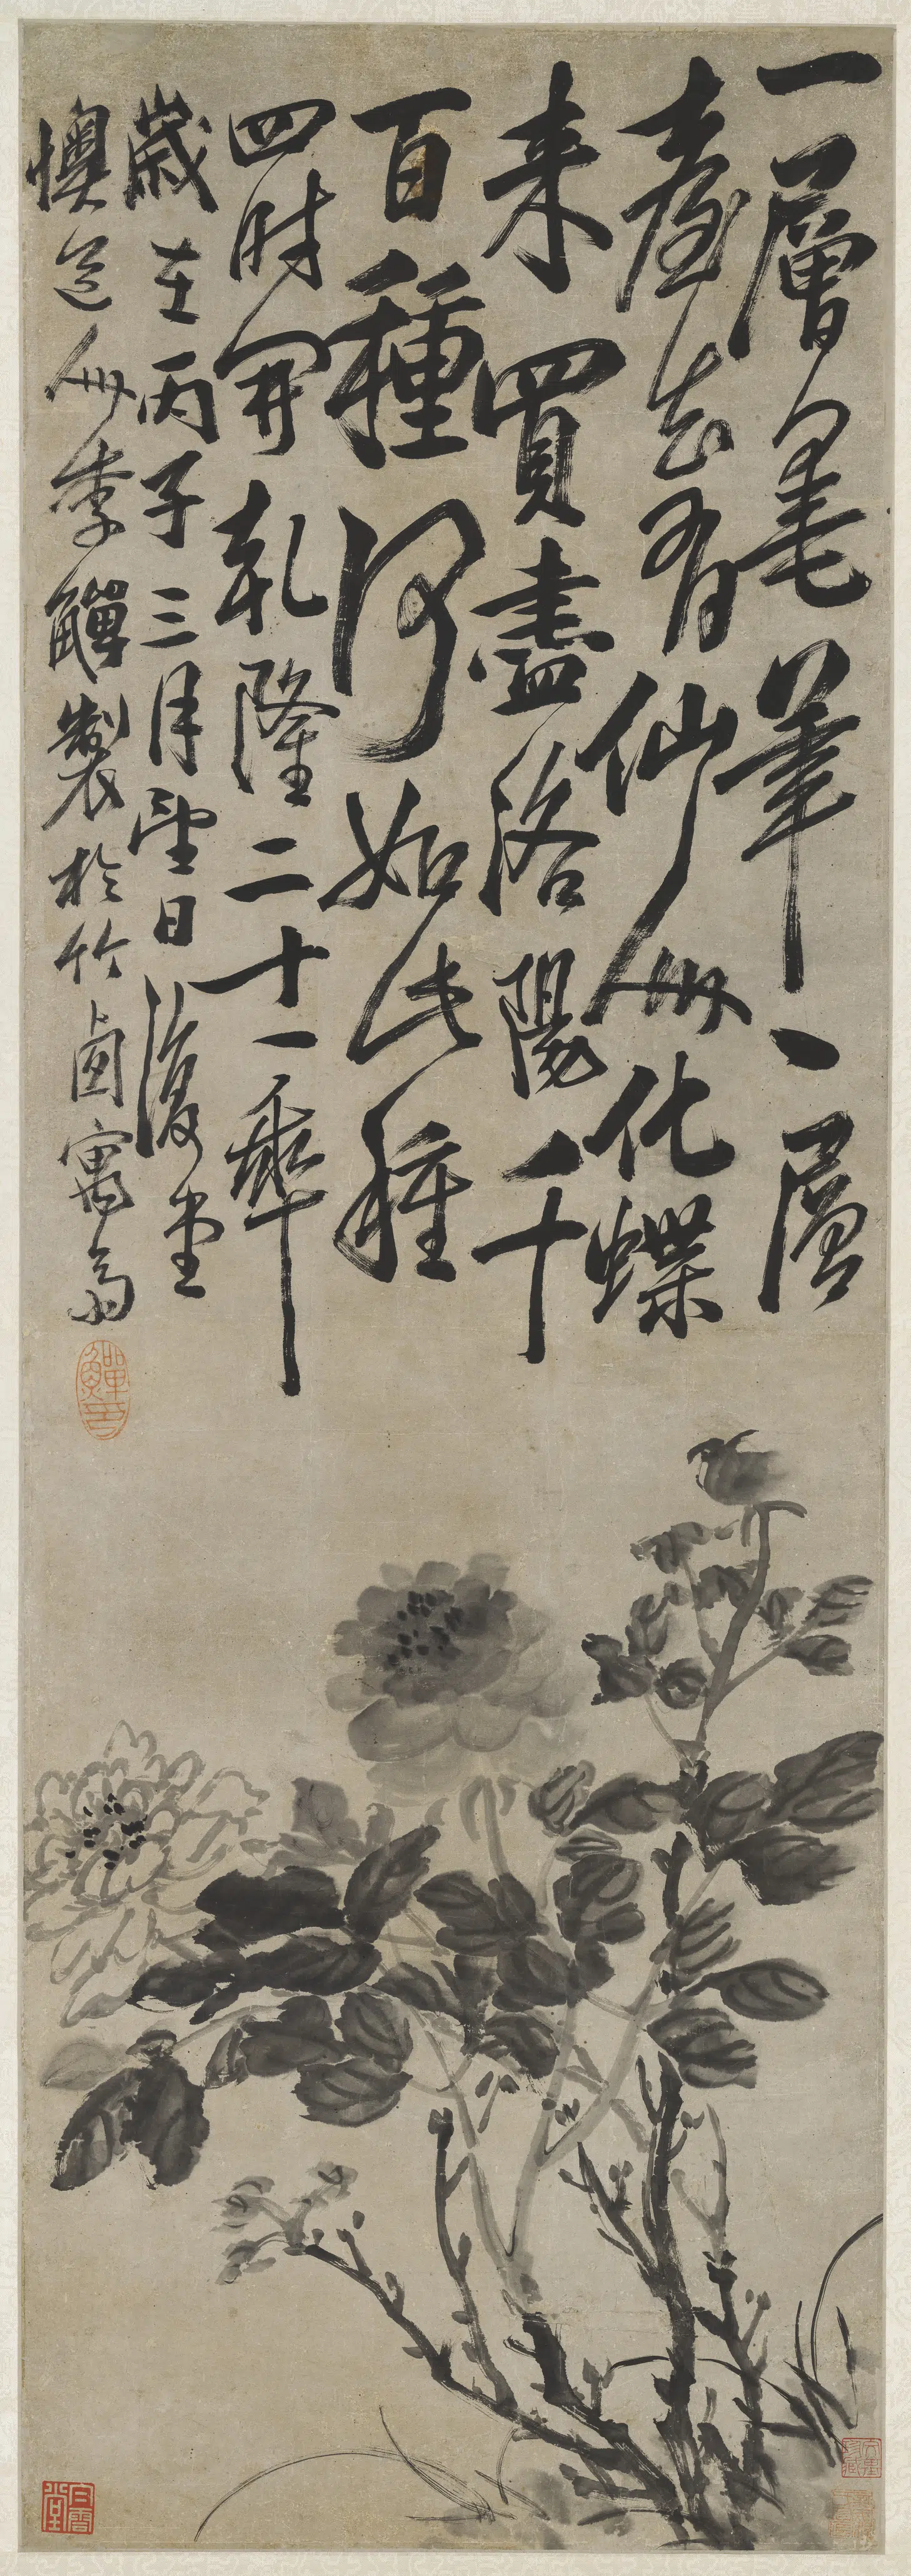 一層毫筆一層
臺去有仙人化蝶
来買盡洛陽千
百種何如此種
四時開乾隆二十一年
歲在丙子三月望日復堂
懊道人李鱓製於竹卥寓齋
鱓印
白雲堂